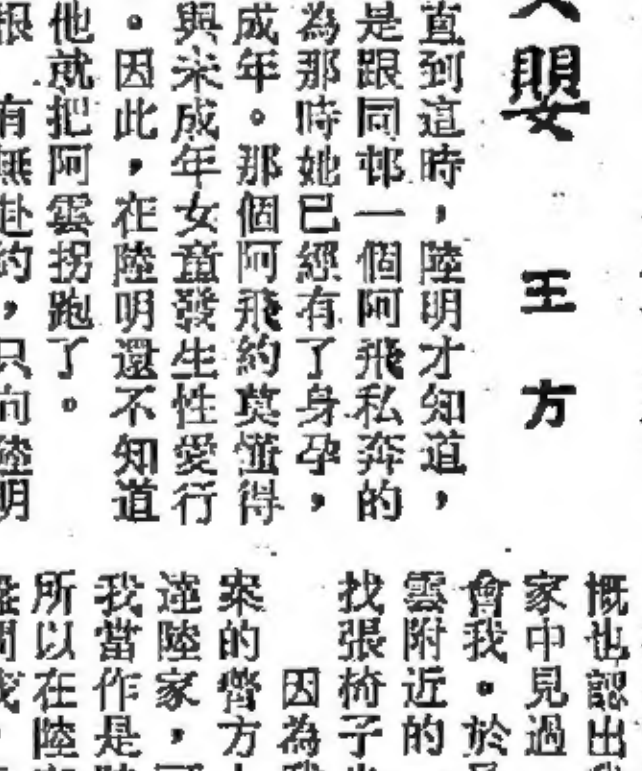 嬰
王方
直到這時，陸明才知道，
是跟同邨一個阿飛私奔的
為那時她已經有了身孕，
成年。那個阿飛約莫懂得
與未成年女童發生性愛行
。因此，在陸明還不知道
他就把阿雲拐跑了。
有無赴約，只向陸明
慨也認出
家中見過
會我。於
雲附近的
找張椅子
因為我
案的警方
達陸家，
我當作是
所以在陸